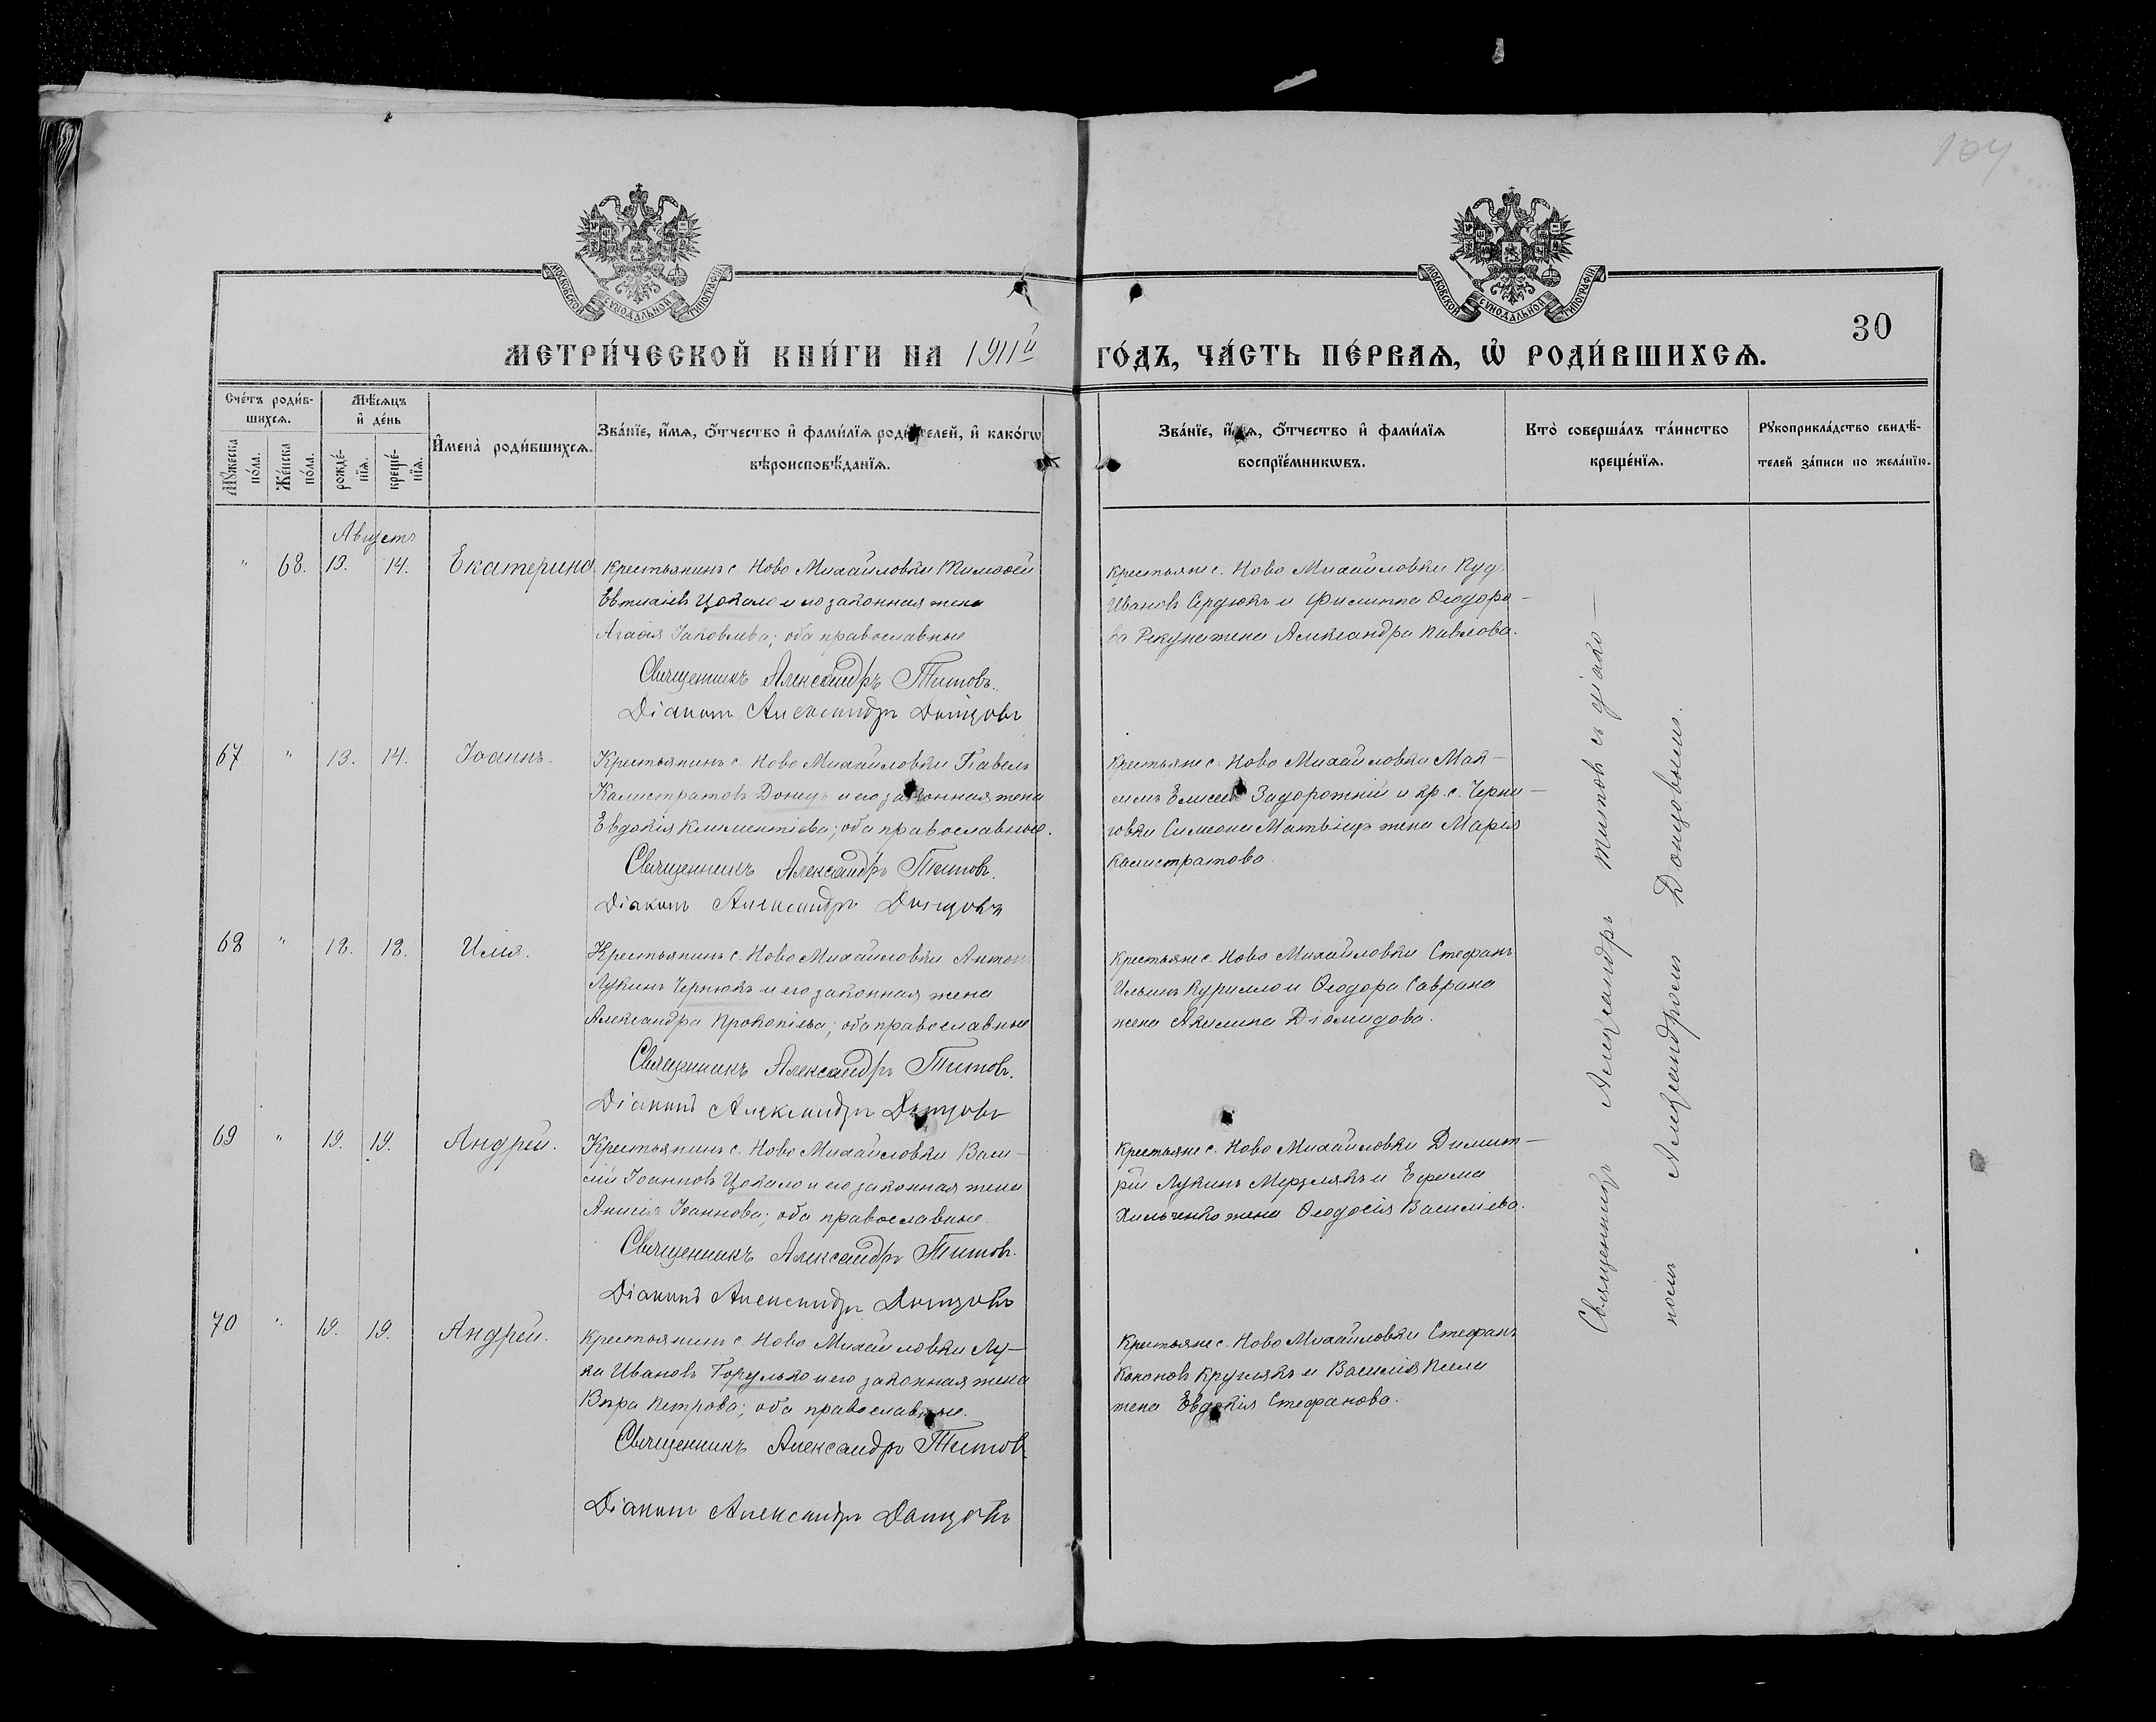 104
МОСКОВСКОЙ СѴНОДАЛЬНОЙ ТИПОГРАФІИ
МОСКОВСКОЙ СѴНОДАЛЬНОЙ ТИПОГРАФІИ
30
МЕТРИ́ЧЕСКОЙ КНИ́ГИ НА 1911й ГО́ДЪ, ЧА́СТЬ ПЕ́РВАѦ, Ѡ҆ РОДИ́ВШИХСѦ.
Сче́тъ роди́в-
шихсѧ.
Мꙋ́жеска по́ла.
Же́нска по́ла.
Мѣ́сѧцъ
и҆ де́нь
рожде́-нїѧ.
креще́-нїѧ.
И҆мена̀ роди́вшихсѧ.
Зва́нїе, и҆́мѧ, ѻ҆́тчество и҆ фами́лїѧ роди́телей, и҆ како́гѡ
вѣроисповѣ́данїѧ.
Зва́нїе, и҆́мѧ, ѻ҆́тчество и҆ фами́лїѧ
воспрїе́мникѡвъ.
Кто̀ соверша́лъ та́инство
креще́нїѧ.
Рꙋкоприкла́дство свидѣ́-
телей за́писи по жела́нїю.
Августъ
" 68. 13. 14. Екатерина
Крестьянинъ с. Ново Михайловки Тимофей
Евтихіевъ Цокало и его законная жена
Агафія Іаковлева; оба православные
Священникъ Александръ Титовъ.
Діаконъ Александръ Донцовъ
Крестьяне с. Ново Михайловки
Ивановъ Сердюкъ и Филиппа Ѳеодоро-
ва Рекуна жена Александра Павлова.
67 " 13. 14. Іоаннъ.
Крестьянинъ с. Ново Михайловки Павелъ
Калистратовъ Донецъ и его законная жена
Евдокія Климентіева; оба православные.
Священникъ Александръ Титовъ.
Діаконъ Александръ Донцовъ
Крестьяне с. Ново Михайловки Мак-
симъ Елисеевъ Задорожній и кр. с. Черни-
говки Симеона жена Марія
Калистратова.
68 " 18. 18. Илія.
Крестьянинъ с. Ново Михайловки Антон
Лукинъ Чернюкъ и его законная жена
Александра Прокопіева; оба православные
Священникъ Александръ Титовъ.
Діаконъ Александръ Донцовъ
Крестьяне с. Ново Михайловки Стефанъ
Ильинъ Курилло и Ѳеодора Саврана
жена Акилина Діомидова.
69 " 19. 19. Андрей.
Крестьянинъ с. Ново Михайловки Васи-
лій Іоанновъ Цокало и его законная жена
Анисія Іоаннова; оба православные.
Священникъ Александръ Титовъ.
Діаконъ Александръ Донцовъ
Крестьяне с. Ново Михайловки Димит-
рій Лукинъ Мерзлякъ и Ефима
Хильченко жена Ѳеодосія Василіева.
70 " 19. 19. Андрей.
Крестьянинъ с. Ново Михайловки Лу-
ка Ивановъ Горулько и его законная жена
Вѣра Петрова; оба православные.
Священникъ Александръ Титовъ
Діаконъ Александръ Донцовъ
Крестьяне с. Ново Михайловки Стефанъ
Кононовъ Круглякъ и Василія
жена Евдокія Стефанова.
Священникъ Александръ Титовъ съ діако-
номъ Александромъ Донцовымъ.